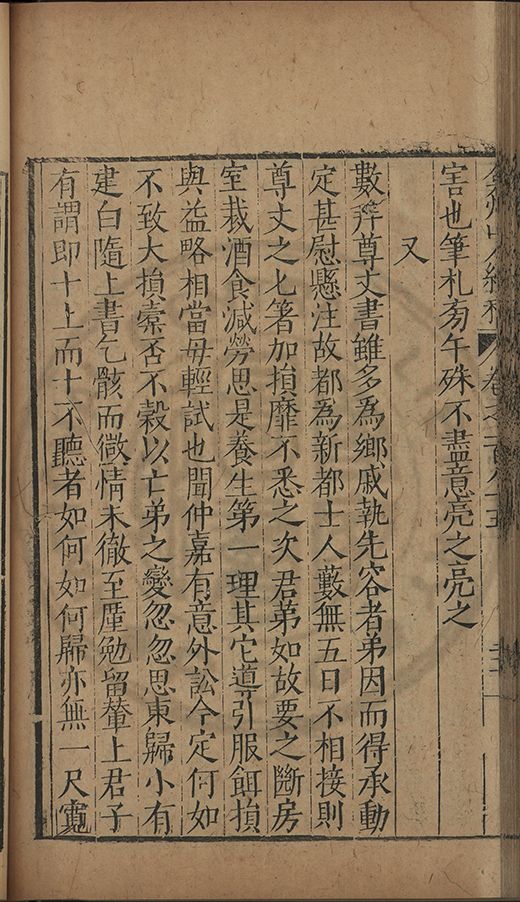 州山人續稿 卷之一百八十五
害也筆札旁午殊不盡意亮之亮之
又
數拜尊丈書雖多為鄉戚執先容者弟因而得承動
定甚慰懸注故都為新都士人藪無五日不相接則
尊丈之匕箸加損靡不悉之次君弟如故要之斷房
室裁酒食減勞思是養生第一理其它導引服餌損
與益略相當毋輕試也聞仲嘉有意外訟今定何如
不致大損橐否不榖以亡弟之變忽忽思東歸小有
建白隨上書乞骸而微情未徹至厪勉留輦上君子
有謂即十上而十不聽者如何如何歸亦無一尺竁